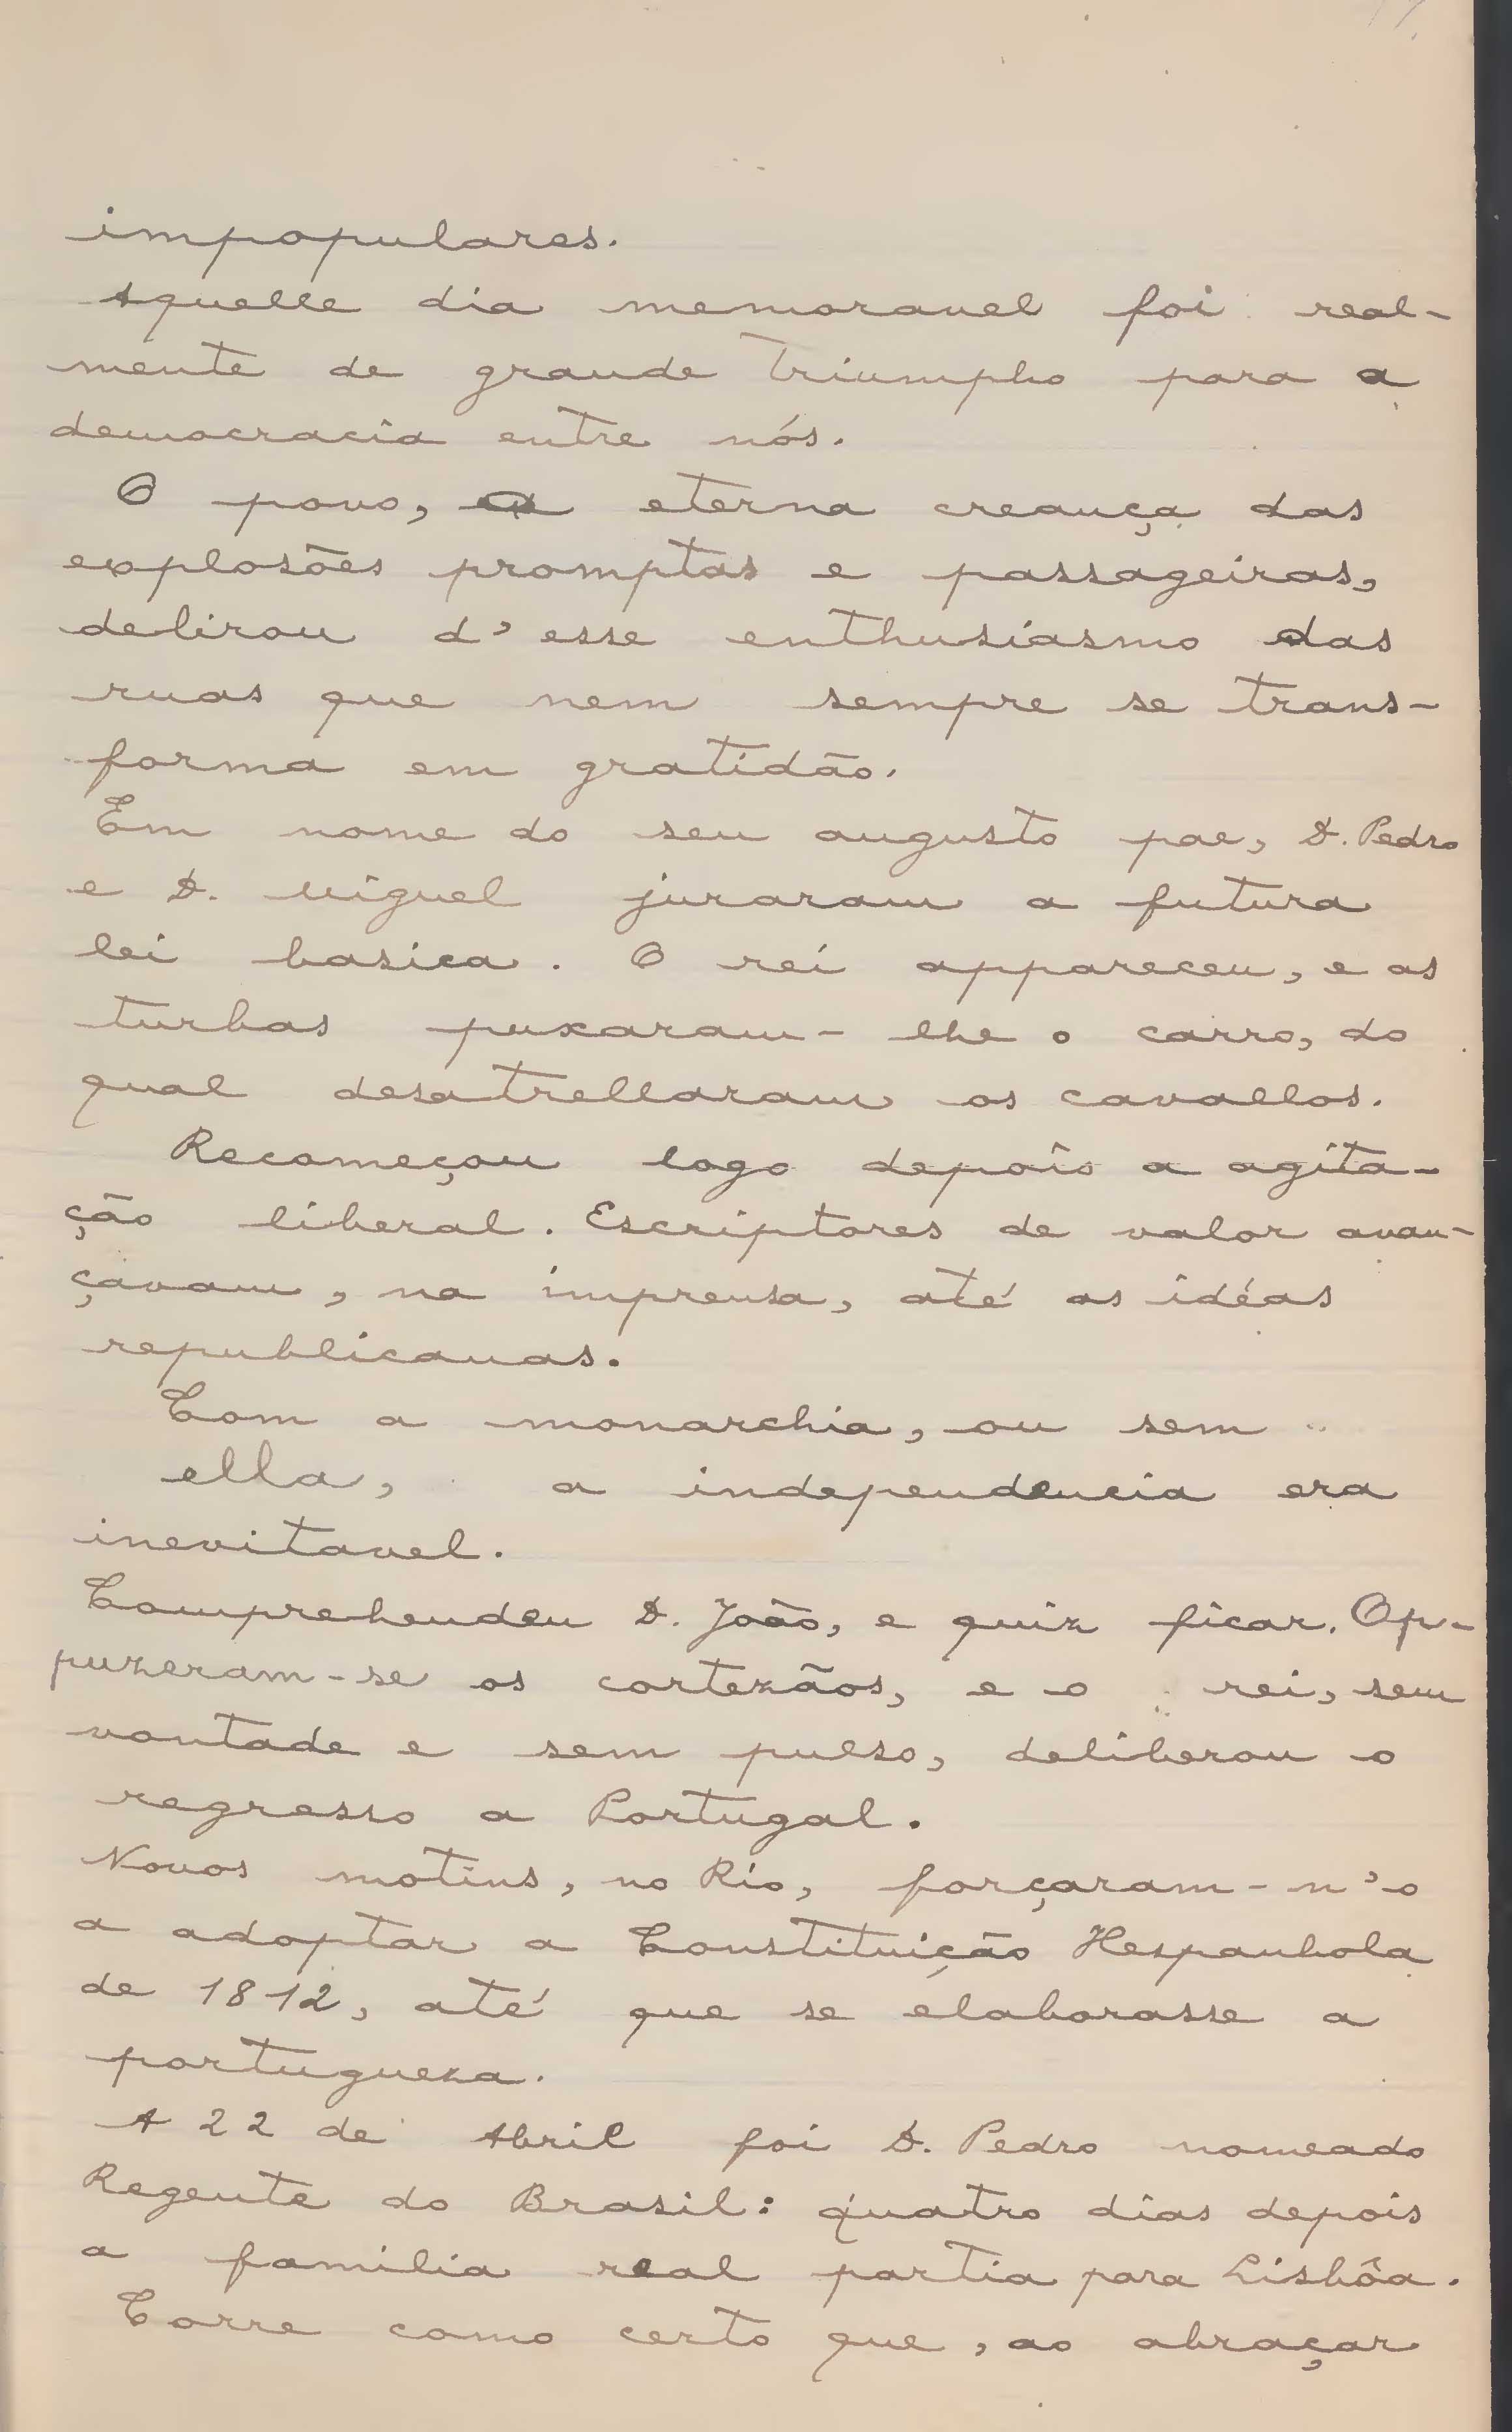 impopulares.
Aquelle dia memoravel foi real-
mente de grande triumpho para a
democracia entre nós.
O povo, a eterna creança das
explosões promptas e passageiras,
delirou d'esse enthusiasmo das
ruas que nem sempre se trans-
forma em gratidão.
Em nome do seu augusto pae, D. Pedro
e D. Miguel juraram a futura
lei basica. O rei appareceu, e as
turbas puxaram-lhe o carro, do
qual desatrellaram os cavallos.
Recomeçou logo depois a agita-
ção liberal. Escriptores de valor avan-
çavam, na imprensa, até as idéas
republicanas.
Com a monarchia, ou sem
ella, a independencia era
inevitavel.
Comprehendeu D. João, e quiz ficar. Op-
puzeram-se os cortezãos, e o rei, sem
vontade e sem pulso, deliberou o
regresso a Portugal.
Novos motins, no Rio, forçaram-n'o
a adoptar a Constituição Hespanhola
de 1812, até que se elaborasse a
portugueza.
A 22 de Abril foi D. Pedro nomeado
Regente do Brasil: quatro dias depois
a familia real partia para Lisbôa.
Corre como certo que, ao abraçar